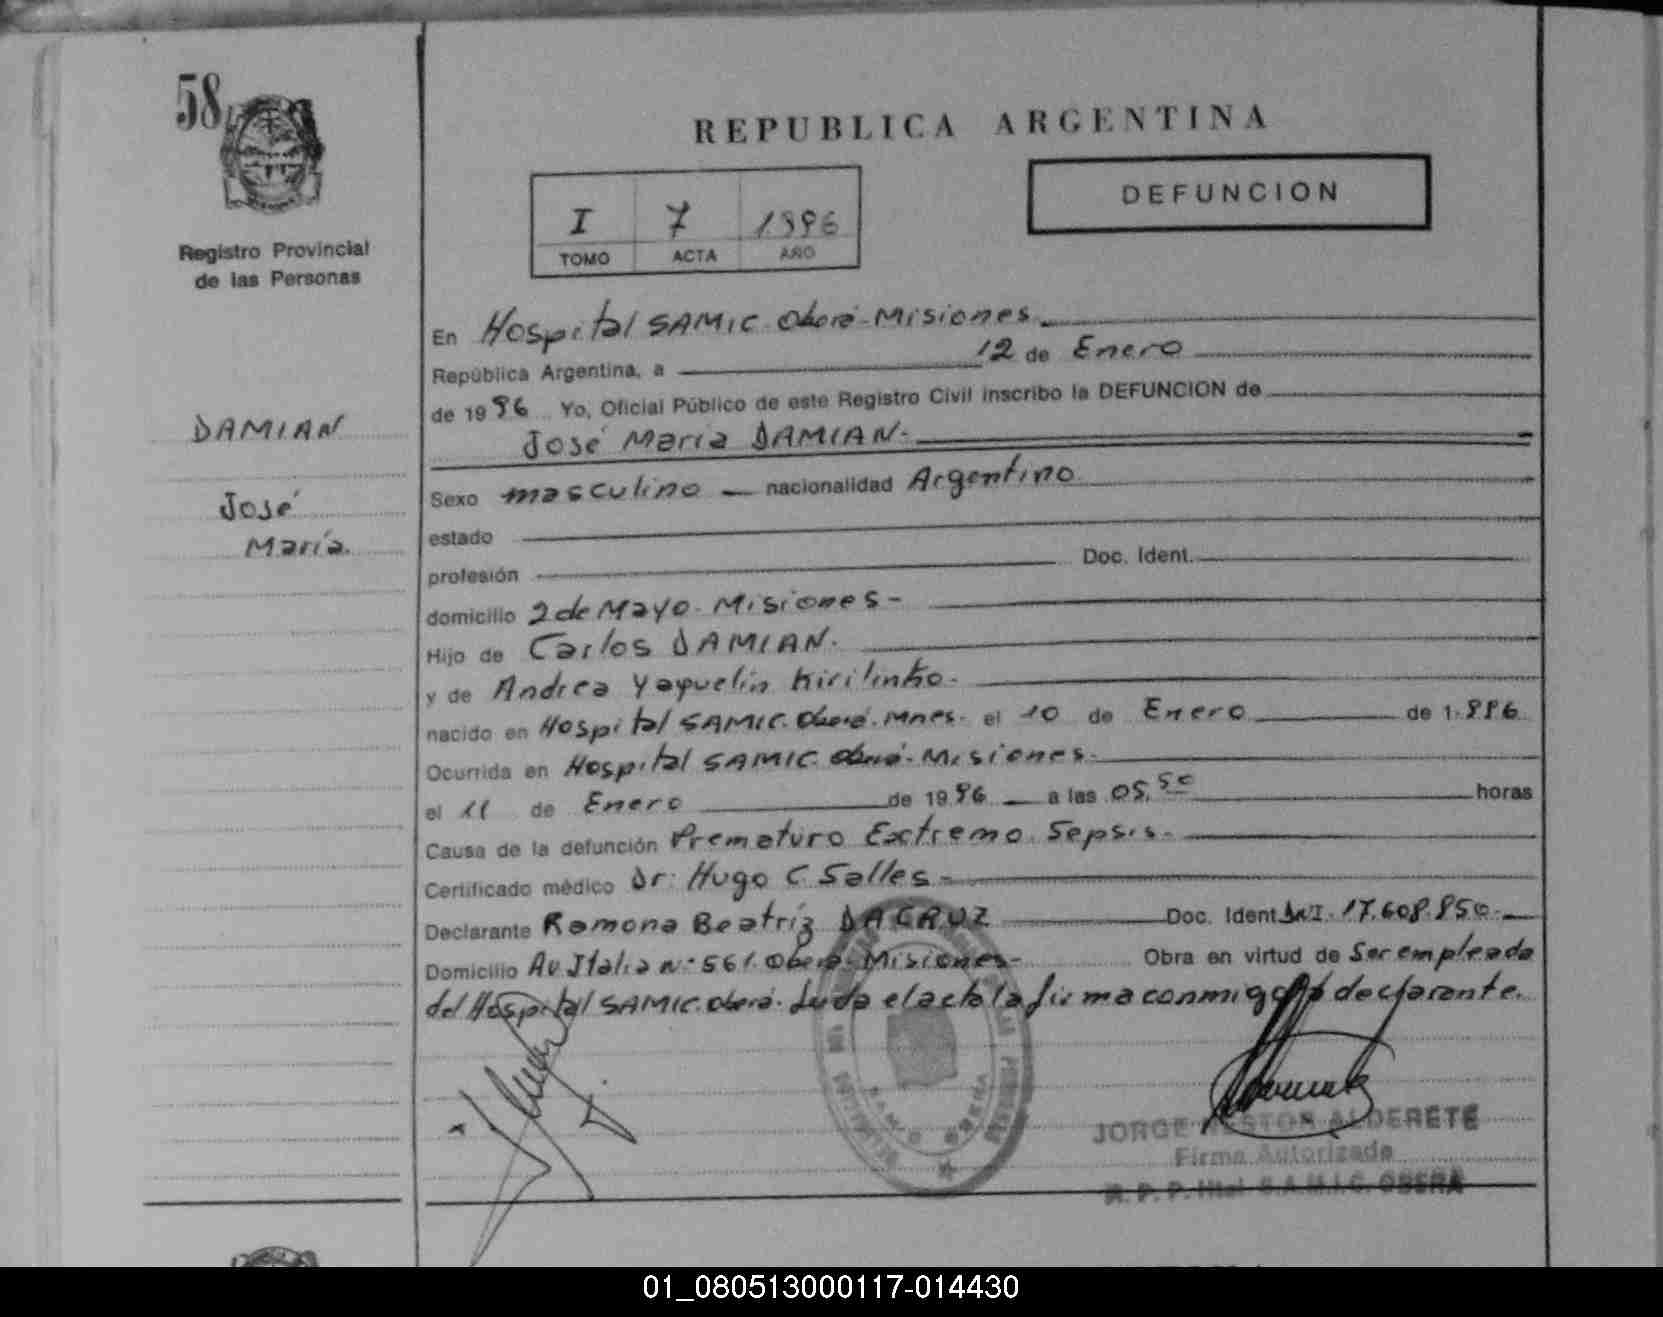 58
Registro Provincial
de las Personas
DAMIAN
José
María.
REPUBLICA ARGENTINA
I 7 1996
TOMO ACTA AÑO
DEFUNCION
En Hospital SAMIC. Oberá-Misiones.
República Argentina, a 12 de Enero
de 1996 Yo, Oficial Público de este Registro Civil inscribo la DEFUNCION de
José María DAMIAN.
Sexo masculino - nacionalidad Argentino.
estado
profesión Doc. Ident.
domicilio 2 de Mayo. Misiones-
Hijo de Carlos DAMIAN.
y de Andrea Yaquelín Kirilinko-
nacido en Hospital SAMIC. Oberá. Mnes. el 10 de Enero de 1.996
Ocurrida en Hospital SAMIC. Oberá-Misiones.
el 11 de Enero de 1996 a las 05,50 horas
Causa de la defunción Prematuro Extremo. Sepsis-
Certificado médico Dr: Hugo C Salles-
Declarante Ramona Beatriz DACRUZ Doc. Ident D.N.I. 17.608.850-
Domicilio Av. Italia N° 561. Oberá-Misiones- Obra en virtud de Ser empleada
del Hospital SAMIC. Oberá. Leída el acta la firma conmigo la declarante.
JORGE NESTOR ALDERETE
Firma Autorizada
R. P. P. Htal S.A.M.I.C. OBERA
01_080513000117-014430